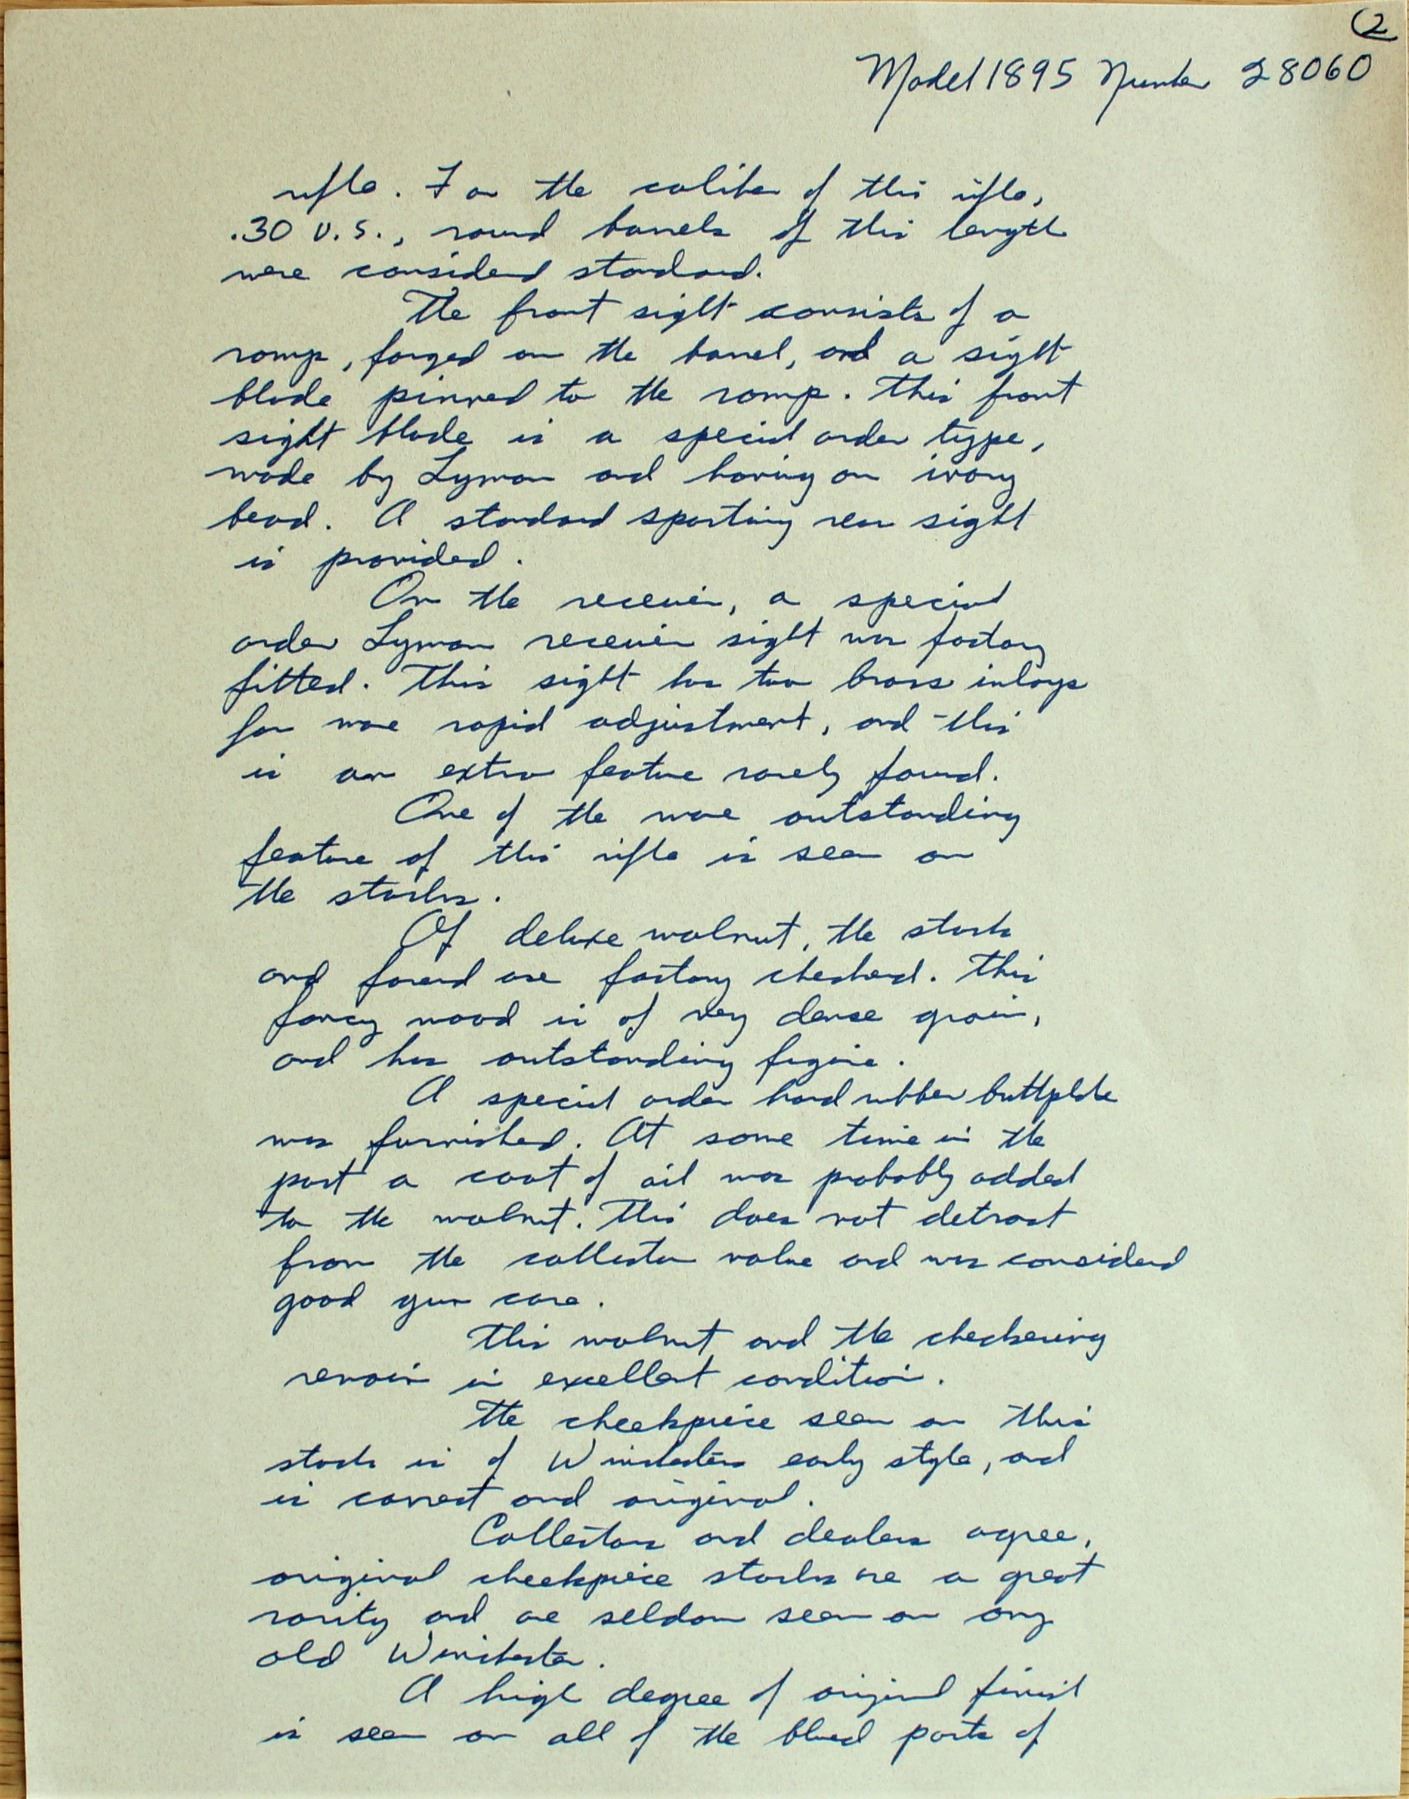 (2
Model 1895 Number 28060
rifle. For the caliber of this rifle,
.30 U.S., round barrels of this length
were considered standard.
The front sight consists of a
ramp, forged on the barrel, and a sight
blade pinned to the ramp. This front
sight blade is a special order type,
made by Lyman and having an ivory
bead. A standard sporting rear sight
is provided.
On the receiver, a special
order Lyman receiver sight was factory
fitted. This sight has two brass inlays
for more rapid adjustment, and this
is an extra feature rarely found.
One of the more outstanding
feature of this rifle is seen on
the stocks.
Of deluxe walnut, the stock
and forend are factory checkered. This
fancy wood is of very dense grain,
and has outstanding figure.
A special order hard rubber buttplate
was furnished. At some time in the
past a coat of oil was probably added
to the walnut. This does not detract
from the collector value and was considered
good gun care.
This walnut and the checkering
remain in excellent condition.
The cheekpiece seen on this
stock is of Winchesters early style, and
is correct and original.
Collectors and dealers agree,
original cheekpiece stocks are a great
rarity and are seldom seen on any
old Winchester.
A high degree of original finish
is seen on all of the blued parts of